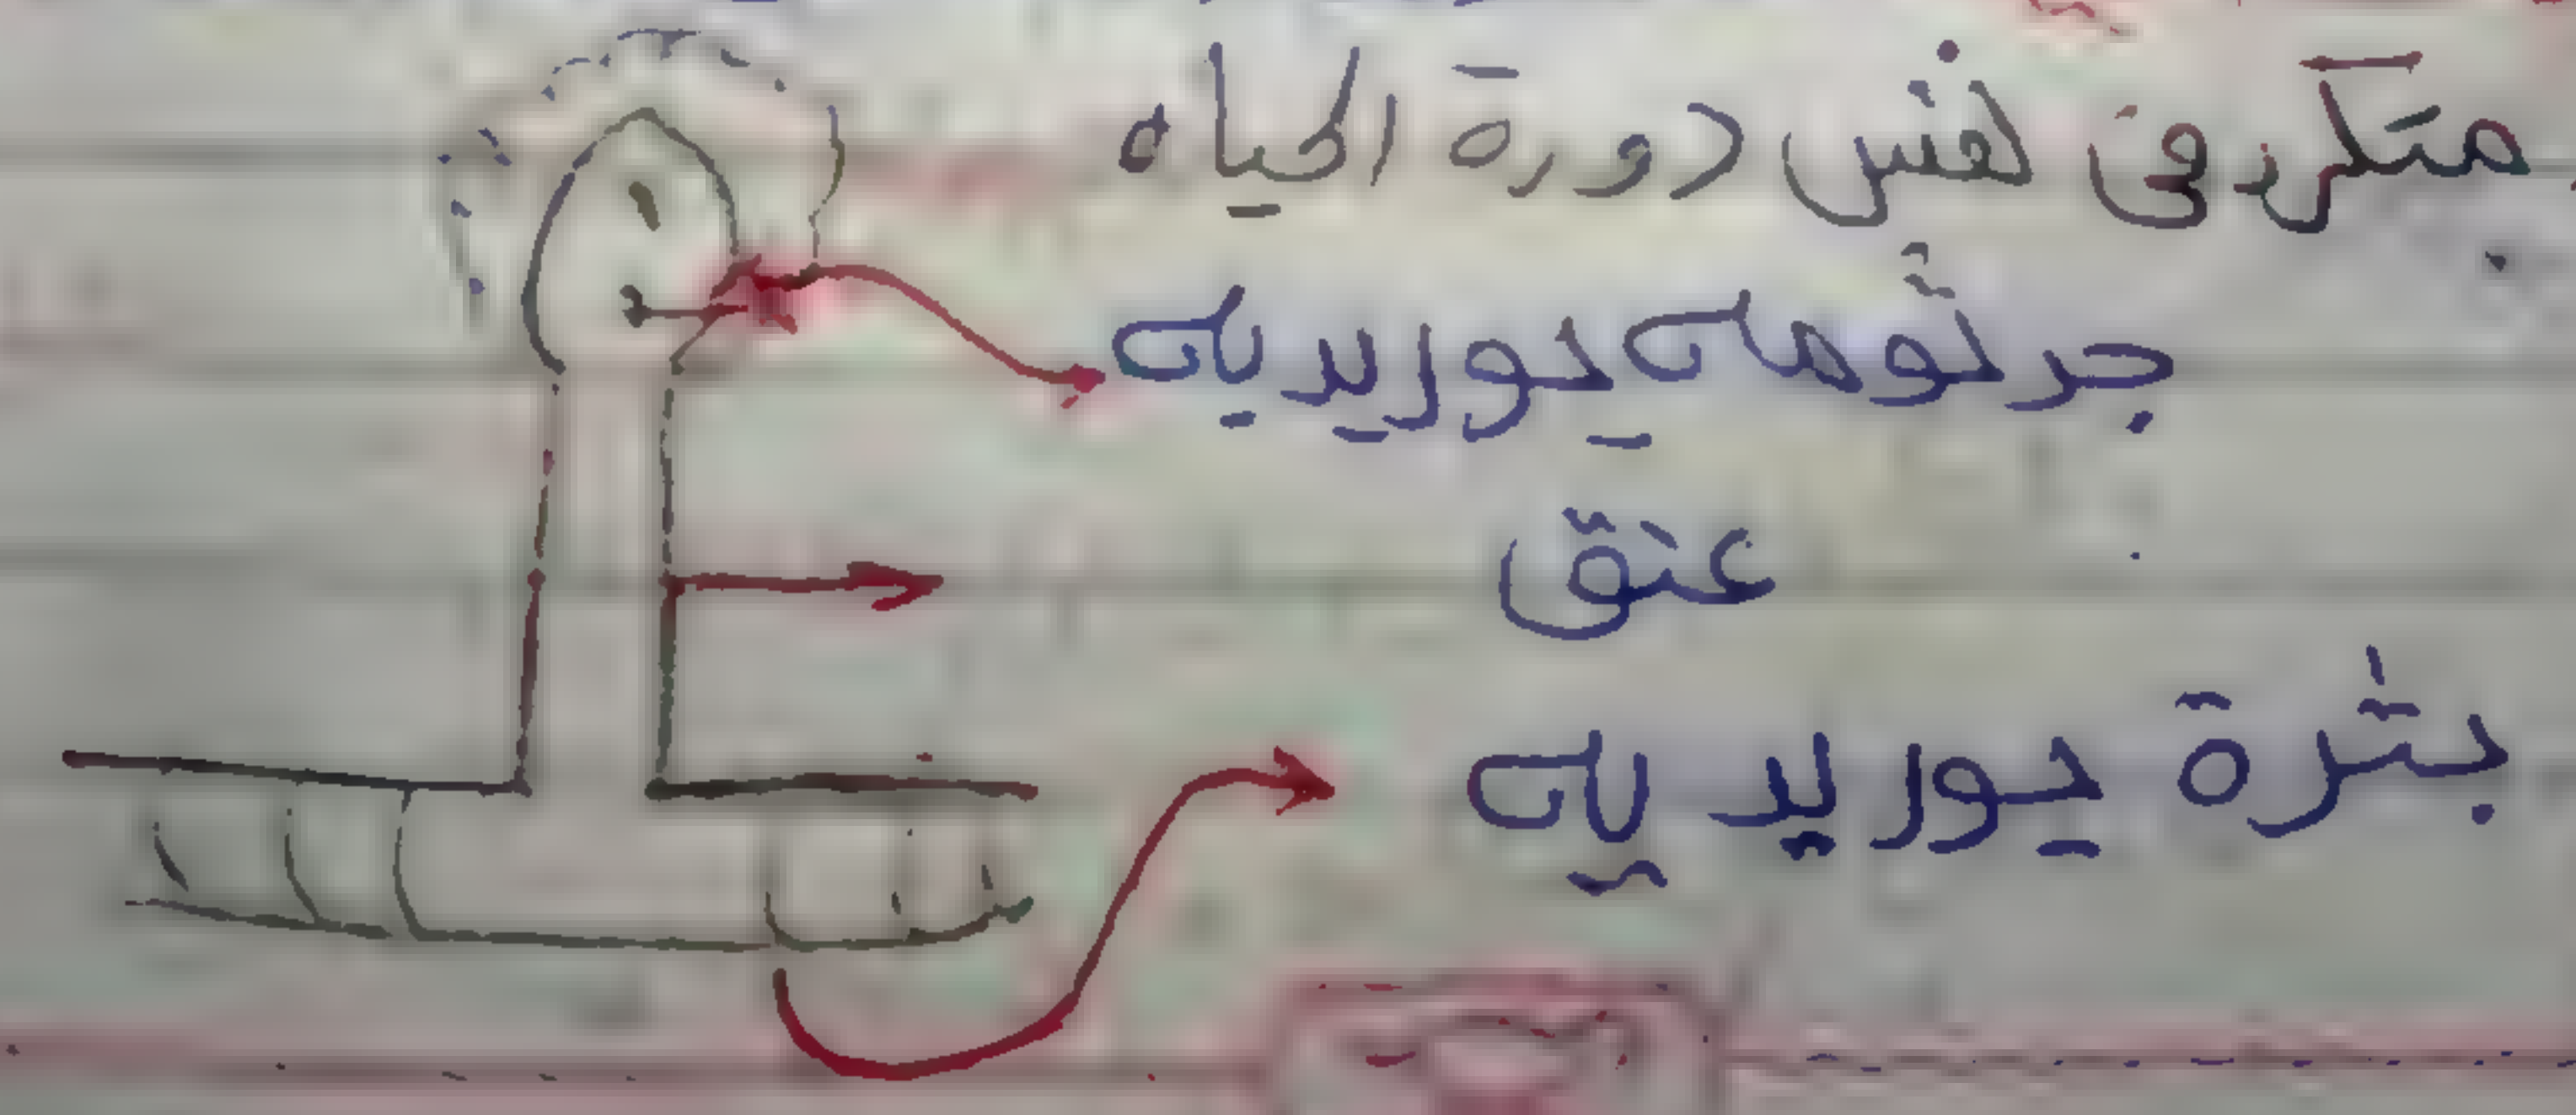 متكرر في نفس دورة الحياه
جرثومه يوريديه
عنق
بثرة يوريديه